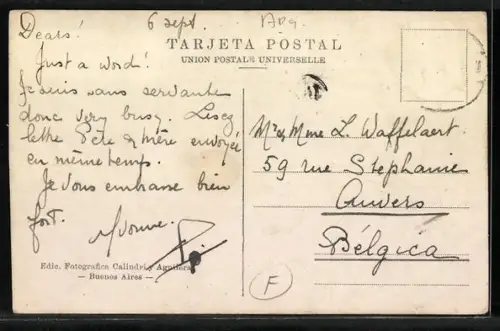 6 sept. Arg.
TARJETA POSTAL
UNION POSTALE UNIVERSELLE
Dears!
Just a word!
Je suis sans servante
donc very busy. Lisez
lettre Père & Mère envoyée
en même temps.
Je vous embrasse bien
fort.
Yvonne.
Mr & Mme L. Waffelaert
59 rue Stephanie
Anvers
Bélgica
Edic. Fotografica Caliudri y Aguilera
— Buenos Aires —
F